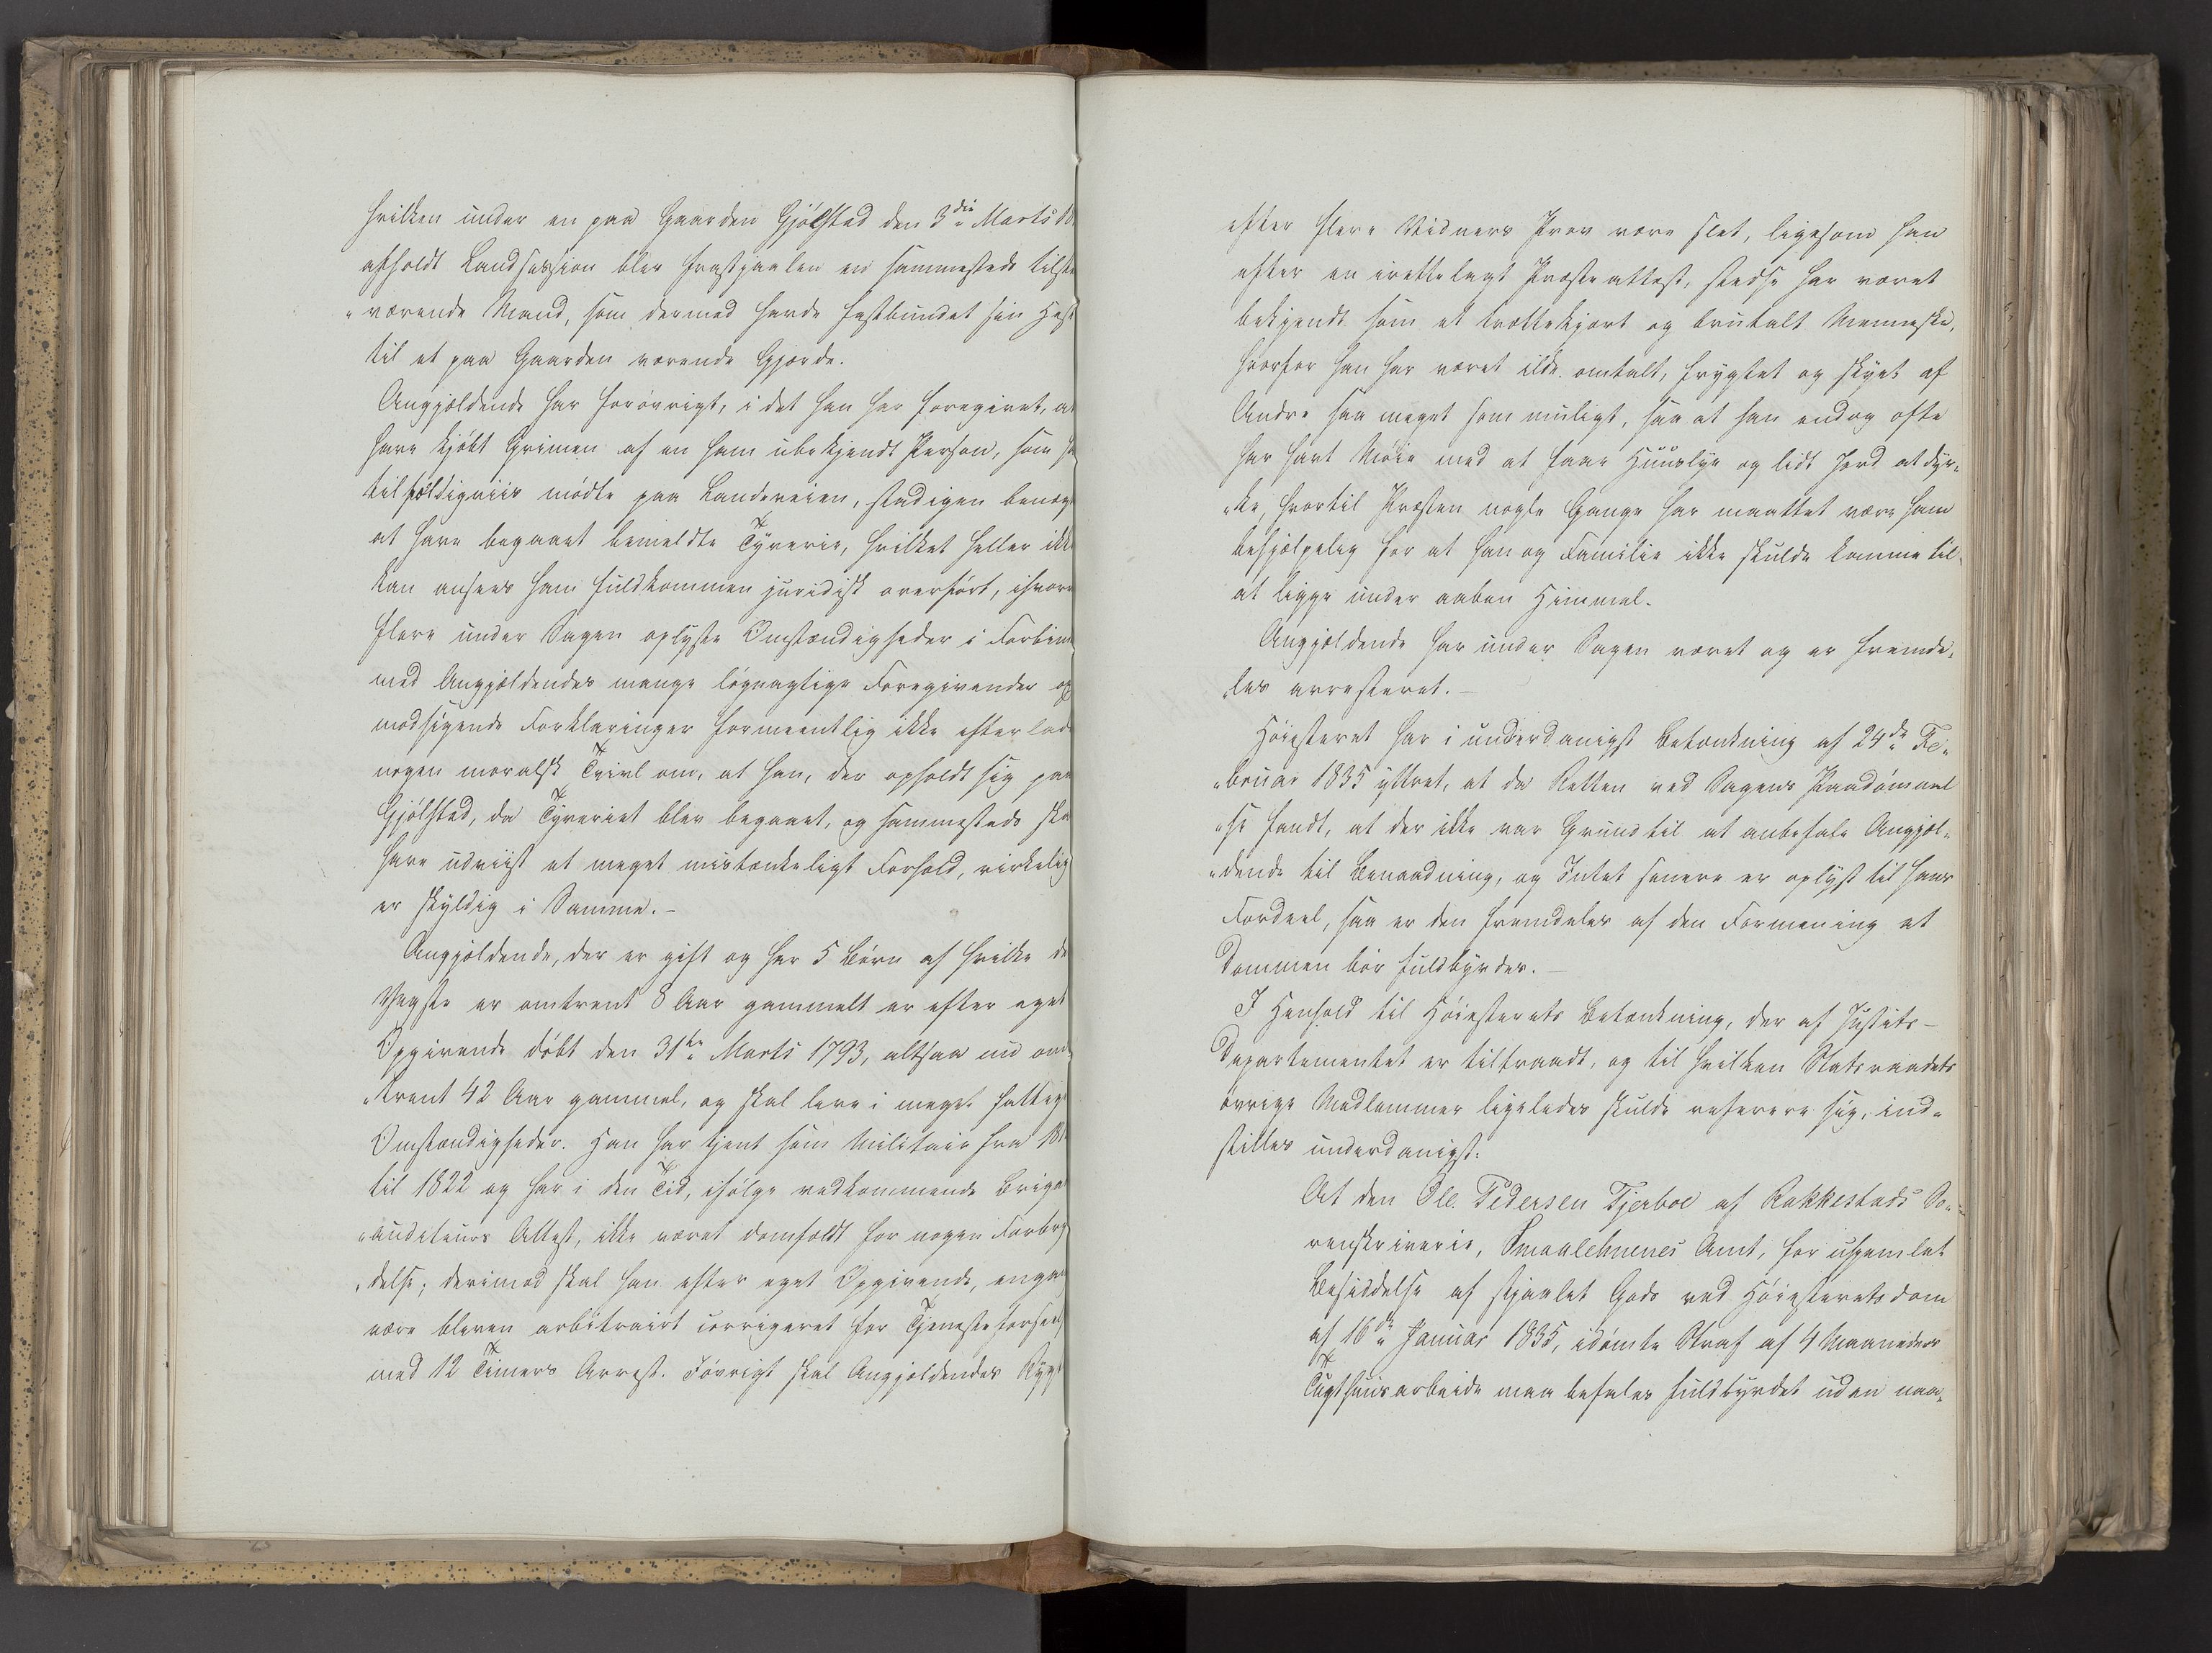 hvilken under en paa Gaarden Gjølstad den 3die Marts 18
afholdt Landsession blev frastjaalen en sammesteds tilste
„værende Mand, som dermed havde fastbundet sin Hest
til et paa Gaarden værende Gjærde.
Angjældende har forøvrigt, i det han har foregivet, at
have kjøbt Grimen af en ham ubekjendt Person, som ha
tilfældigviis mødte paa Landeveien, stadigen benægt
at have begaaet bemeldte Tyverie, hvilket heller ikke
kan ansees ham fuldkommen juridisk overført, ihvorv
flere under Sagen oplyste Omstændigheder i Forbind
med Angjældendes mange løgnagtige Foregivender og
modsigende Forklaringer formeentlig ikke efterlade
nogen moralsk Tvivl om, at han, der opholdt sig paa
Gjølstad, da Tyveriet blev begaaet, og sammesteds ska
have udviist et meget mistænkeligt Forhold, virkelig
er skyldig i Samme. -
Angjældende, der er gift og har 5 Børn af hvilke de
Yngste er omtrent 8 Aar gammelt er efter eget
Opgivende døbt den 31te Marts 1793, altsaa nu om
„trent 42 Aar gammel, og skal leve i meget fattige
Omstændigheder. Han har tjent som Militair fra 18
til 1822 og har i den Tid, ifølge vedkommende Briga
„auditeurs Attest, ikke været domfældt for nogen Forbry
„delse; derimod skal han efter eget Opgivende, engan
være bleven arbitrairt corrigeret for Tjenesteforseel
med 12 Timers Arrest. Iøvrigt skal Angjældendes Rygt
efter flere Vidners Prov være slet, ligesom han
efter en irettelagt Præsteattest, stedse har været
bekjendt som et trættekjært og brutalt Menneske,
hvorfor han har været ilde omtalt, frygtet og skyet af
Andre saa meget som muligt, saa at han endog ofte
har havt Møie med at faae Huuslye og lidt Jord at dyr„
„ke, hvortil Præsten nogle Gange har maattet være ham
behjælpelig for at han og Familie ikke skulde komme til
at ligge under aaben Himmel.
Angjældende har under Sagen været og er fremde„
„les arresteret. -
Høiesteret har i underdanigst Betænkning af 24de Fe„
„bruar 1835 yttret, at da Retten ved Sagens Paadømmel
„se fandt, at der ikke var Grund til at anbefale Angjæl„
„dende til Benaadning, og Intet senere er oplyst til hans
Fordeel, saa er den fremdeles af den Formening at
Dommen bør fuldbyrdes. -
I Henhold til Høiesterets Betænkning, der af Justits-
Departementet er tiltraadt, og til hvilken Statsraadets
øvrige Medlemmer ligeledes skulde referere sig, ind„
stilles underdanigst:
At den Ole Pedersen Tjerboe af Rakkestads So„
renskriverie, Smaalehnenes Amt, for uhjemlet
Besiddelse af stjaalet Gods ved Høiesteretsdom
af 16de Januar 1835, idømte Straf af 4 Maaneders
Tugthuusarbeide maa befales fuldbyrdet uden naa„